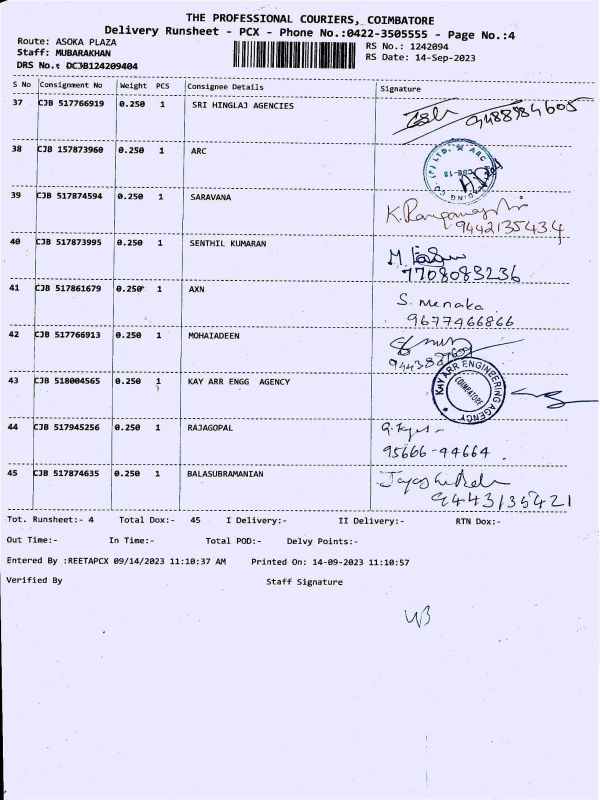 THE PROFESSIONAL COURIERS, COIMBATORE
Delivery Runsheet - PCX - Phone No.:0422-3505555 - Page No.:4
Route: ASOKA PLAZA
RS No.: 1242094
Staff: MUBARAKHAN
RS Date: 14-Sep-2023
DRS No.: DCJB124209404
S No Consignment No Weight PCS Consignee Details Signature
37 CJB 517766919 0.250 1 SRI HINGLAJ AGENCIES
9488984605
38 CJB 157873960 0.250 1 ARC
39 CJB 517874594 0.250 1 SARAVANA
9442135434
40 CJB 517873995 0.250 1 SENTHIL KUMARAN
7708083236
41 CJB 517861679 0.250 1 AXN S. Menaka
9677466866
42 CJB 517766913 0.250 1 MOHAIADEEN
43 CJB 518004565 0.250 1 KAY ARR ENGG AGENCY
KAY ARR ENGINEERING AGENCY
COIMBATORE
44 CJB 517945256 0.250 1 RAJAGOPAL
95666-44664.
45 CJB 517874635 0.250 1 BALASUBRAMANIAN
9443135421
Tot. Runsheet:- 4 Total Dox:- 45 I Delivery:- II Delivery:- RTN Dox:-
Out Time:- In Time:- Total POD:- Delvy Points:-
Entered By :REETAPCX 09/14/2023 11:10:37 AM Printed On: 14-09-2023 11:10:57
Verified By Staff Signature